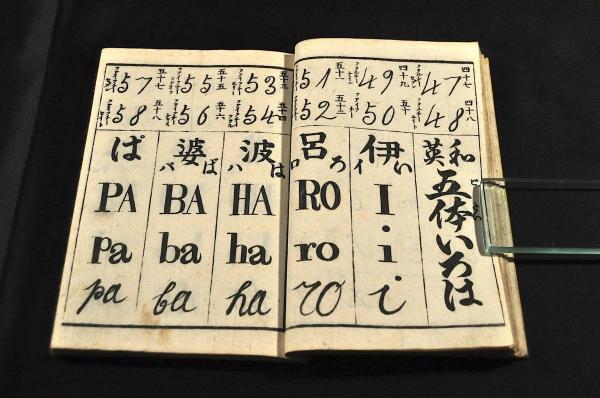 四十七 47
四十八 48
四十九 49
五十 50
五十一 51
五十二 52
五十三 53
五十四 54
五十五 55
五十六 56
五十七 57
五十八 58
和英
五体いろは
伊 い イ
I
i
i
呂 ろ ロ
RO
ro
ro
波 は ハ
HA
ha
ha
婆 ば バ
BA
ba
ba
ぱ
PA
Pa
pa